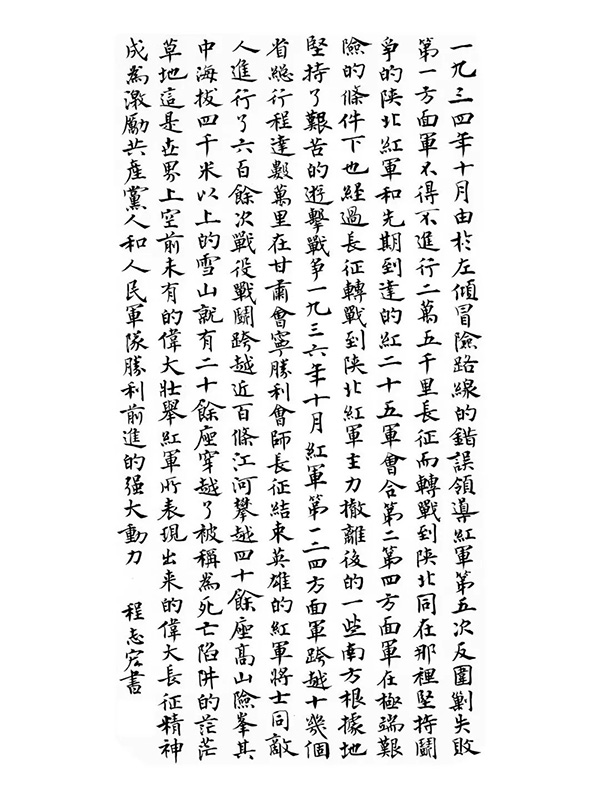 一九三四年十月由於左傾冒險路線的錯誤領導紅軍第五次反圍剿失敗
第一方面軍不得不進行二萬五千里長征而轉戰到陝北同在那裡堅持鬪
爭的陝北紅軍和先期到達的紅二十五軍會合第二第四方面軍在極端艱
險的條件下也經過長征轉戰到陝北紅軍主力撤離後的一些南方根據地
堅持了艱苦的遊擊戰爭一九三六年十月紅軍第一二四方面軍跨越十幾個
省總行程達數萬里在甘肅會寧勝利會師長征結束英雄的紅軍將士同敵
人進行了六百餘次戰役戰鬪跨越近百條江河攀越四十餘座高山險峯其
中海拔四千米以上的雪山就有二十餘座穿越了被稱為死亡陷阱的茫茫
草地這是世界上空前未有的偉大壯舉紅軍所表現出来的偉大長征精神
成為激勵共產黨人和人民軍隊勝利前進的强大動力 程志宏書